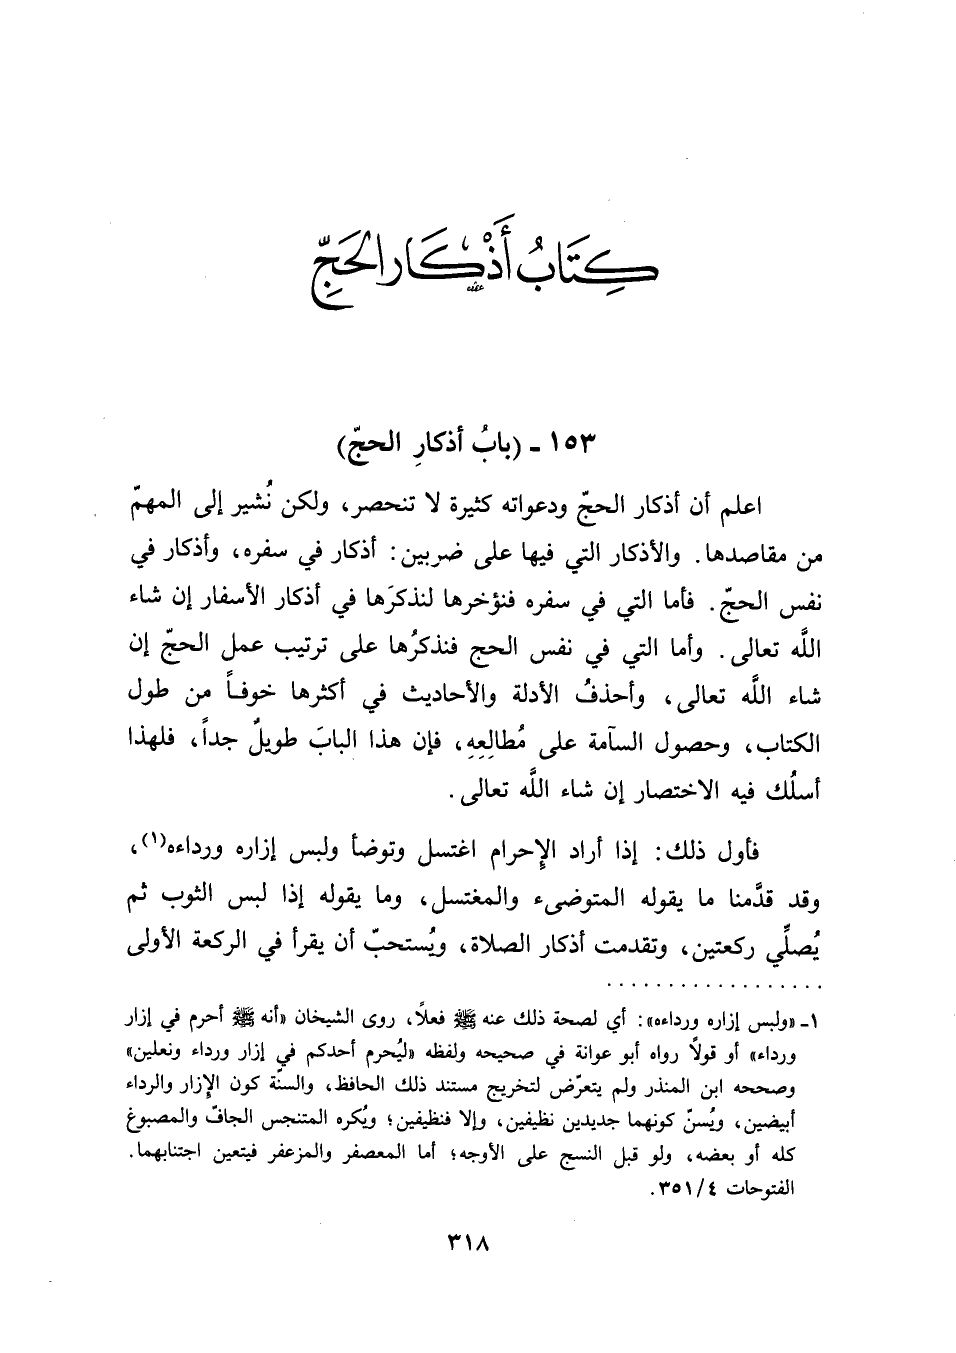 كِتَابُ أَذْكَار الحَجِّ
١٥٣ - (بابُ أذكارِ الحجّ)
اعلم أن أذكار الحجّ ودعواته كثيرة لا تنحصر، ولكن نُشير إلى المهمّ
من مقاصدها. والأذكار التي فيها على ضربين: أذكار في سفره، وأذكار في
نفس الحجّ. فأما التي في سفره فنؤخرها لنذكرَها في أذكار الأسفار إن شاء
اللَّه تعالى. وأما التي في نفس الحج فنذكرُها على ترتيب عمل الحجّ إن
شاء اللَّه تعالى، وأحذفُ الأدلة والأحاديث في أكثرها خوفاً من طول
الكتاب، وحصول السآمة على مُطالِعِهِ، فإن هذا البابَ طويلٌ جداً، فلهذا
أسلُك فيه الاختصار إن شاء اللَّه تعالى.
فأول ذلك: إذا أراد الإِحرام اغتسل وتوضأ ولبس إزاره ورداءه(١)،
وقد قدَّمنا ما يقوله المتوضىء والمغتسل، وما يقوله إذا لبس الثوب ثم
يُصلِّي ركعتين، وتقدمت أذكار الصلاة، ويُستحبّ أن يقرأ في الركعة الأولى
١- «ولبس إزاره ورداءه»: أي لصحة ذلك عنه ﷺ فعلاً، روى الشيخان «أنه ﷺ أحرم في إزار
ورداء» أو قولاً رواه أبو عوانة في صحيحه ولفظه «ليُحرم أحدكم في إزار ورداء ونعلين»
وصححه ابن المنذر ولم يتعرّض لتخريج مستند ذلك الحافظ، والسنّة كون الإِزار والرداء
أبيضين، ويُسنّ كونهما جديدين نظيفين، وإلا فنظيفين؛ ويُكره المتنجس الجافّ والمصبوغ
كله أو بعضه، ولو قبل النسج على الأوجه؛ أما المعصفر والمزعفر فيتعين اجتنابهما.
الفتوحات ٣٥١/٤.
٣١٨